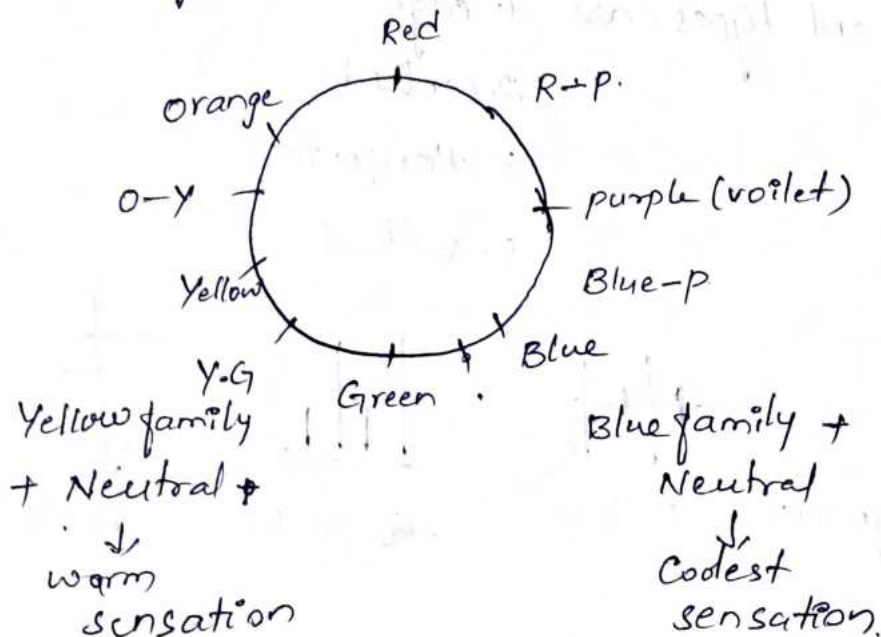 Red
R-P.
Orange
O-Y
purple (voilet)
Yellow
Blue-P
Blue
Y.G
Green
Yellow family
+ Neutral
↓
warm
sensation
Blue family +
Neutral
↓
Coolest
sensation.